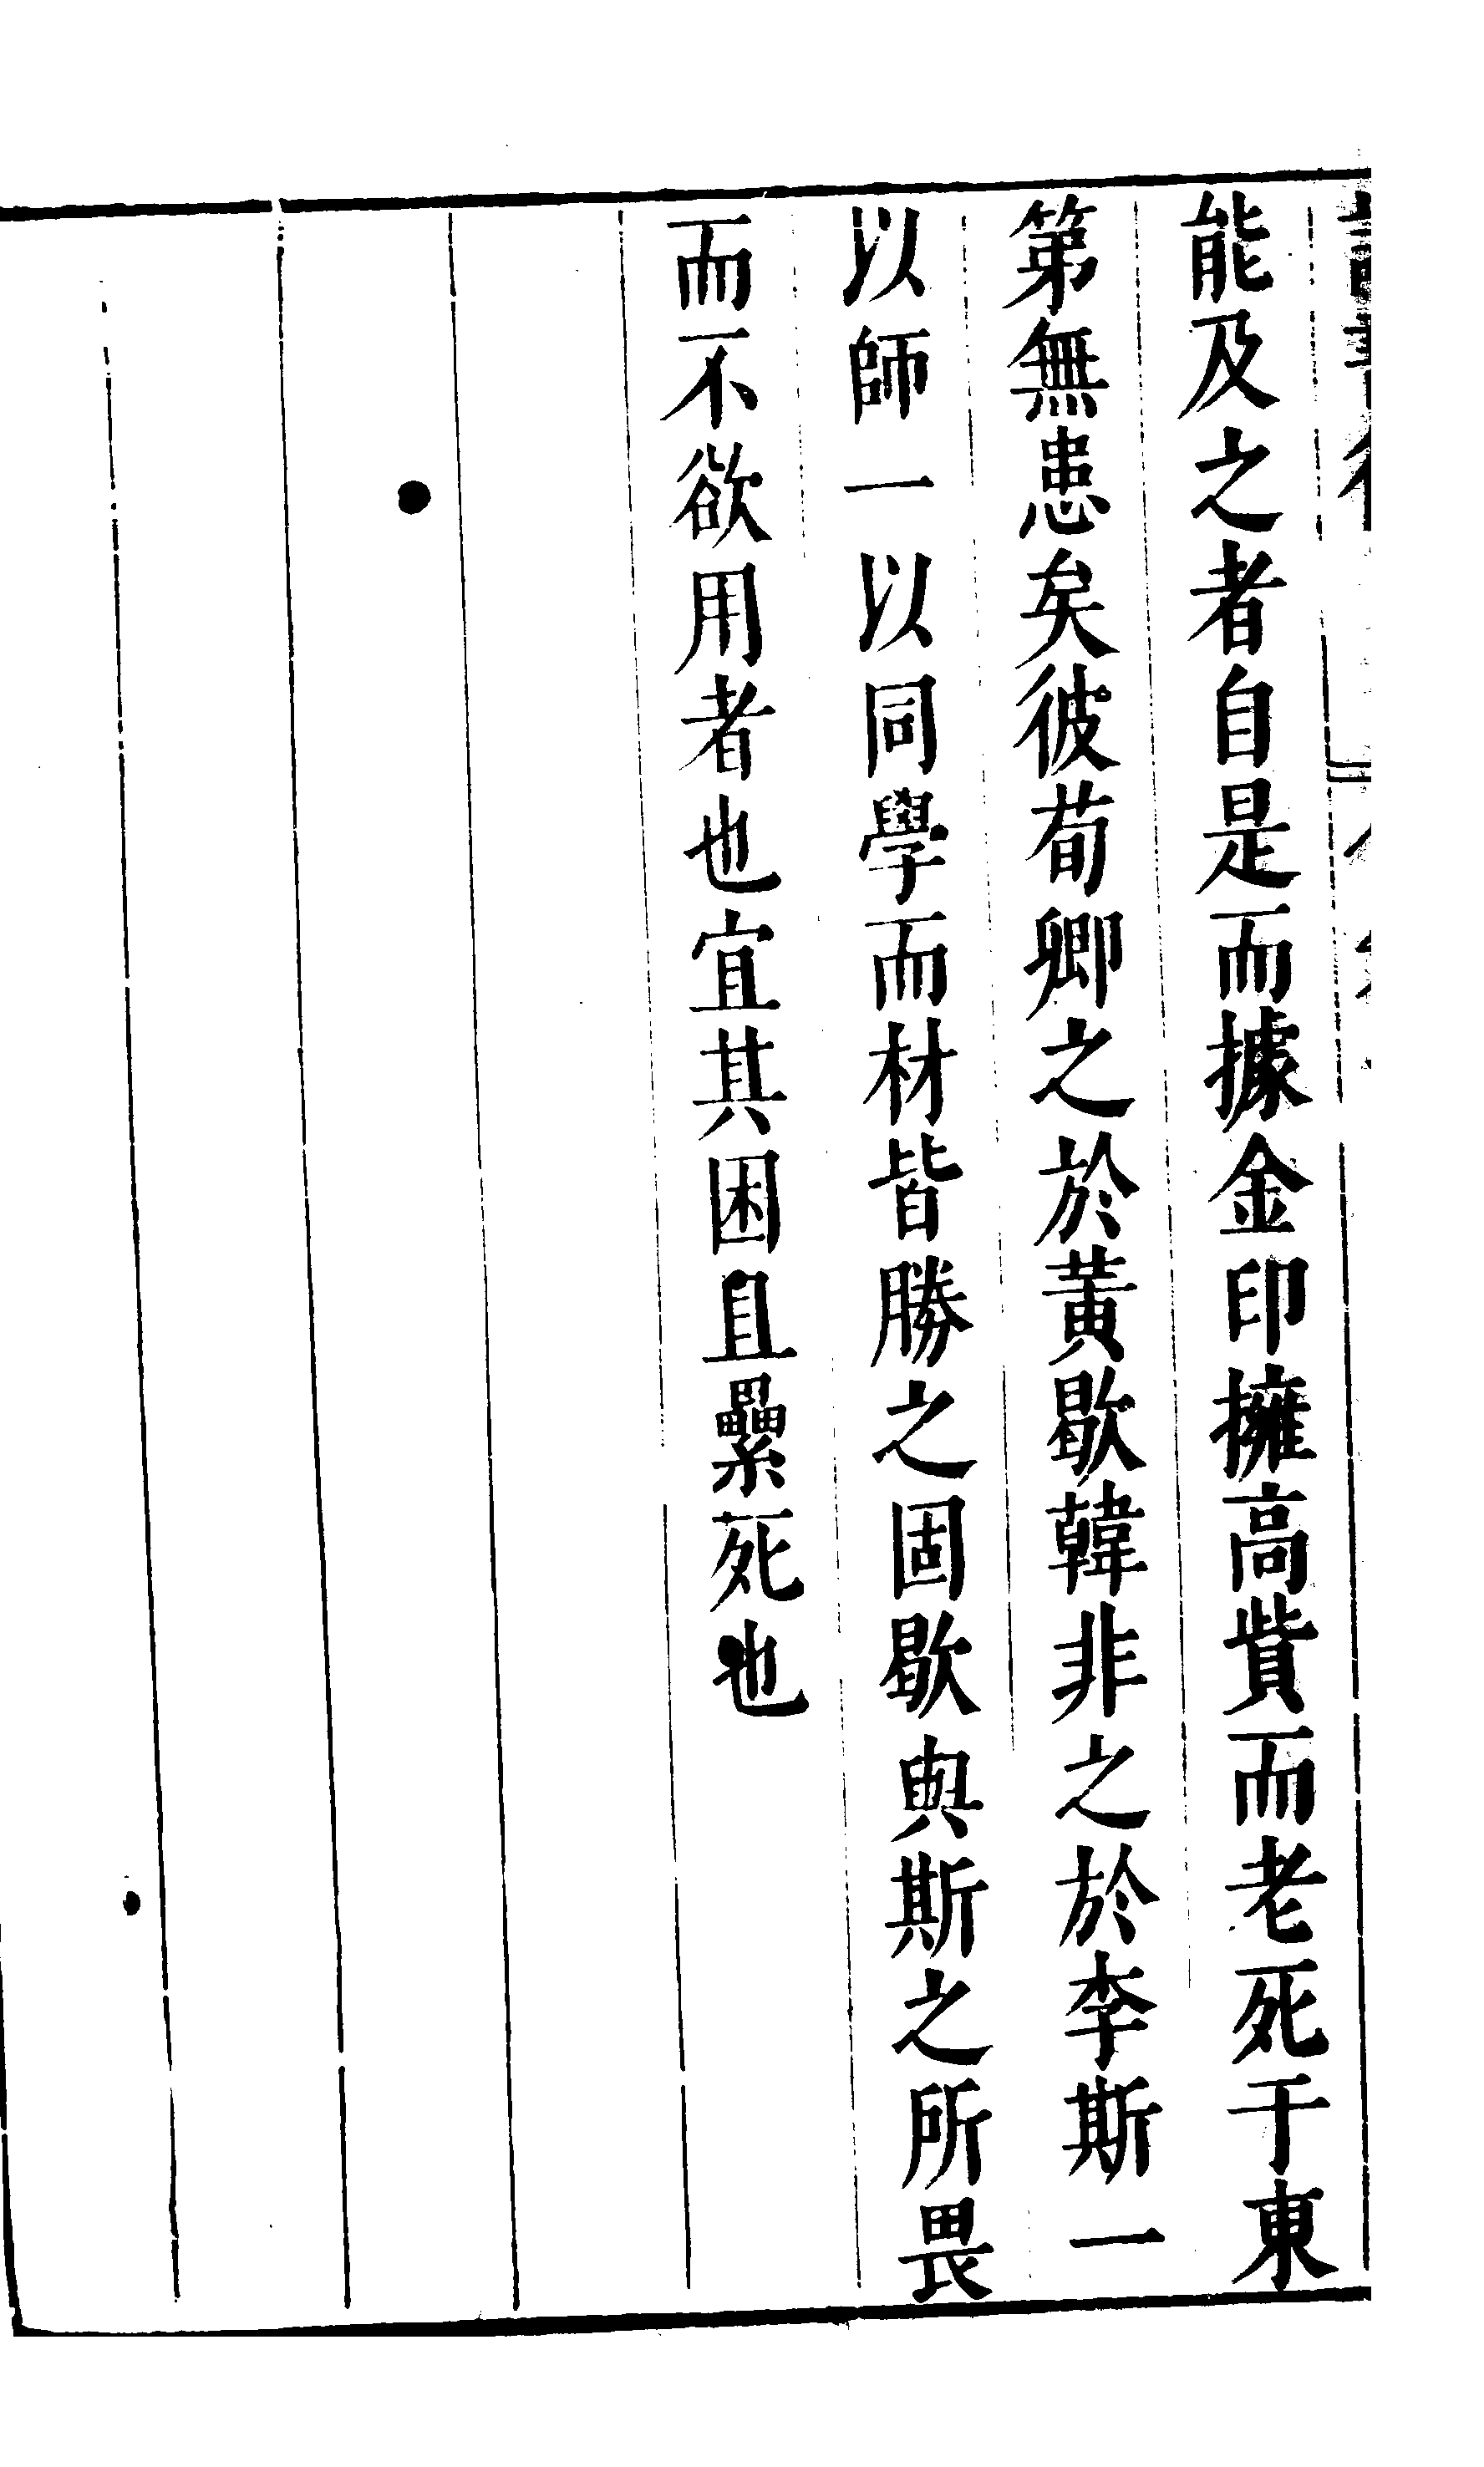 能及之者自是而據金印擁高貲而老死于東
第無患矣彼荀卿之於黃歇韓非之於李斯一
以師一以同學而材皆勝之固歇與斯之所畏
而不欲用者也宜其困且纍死也